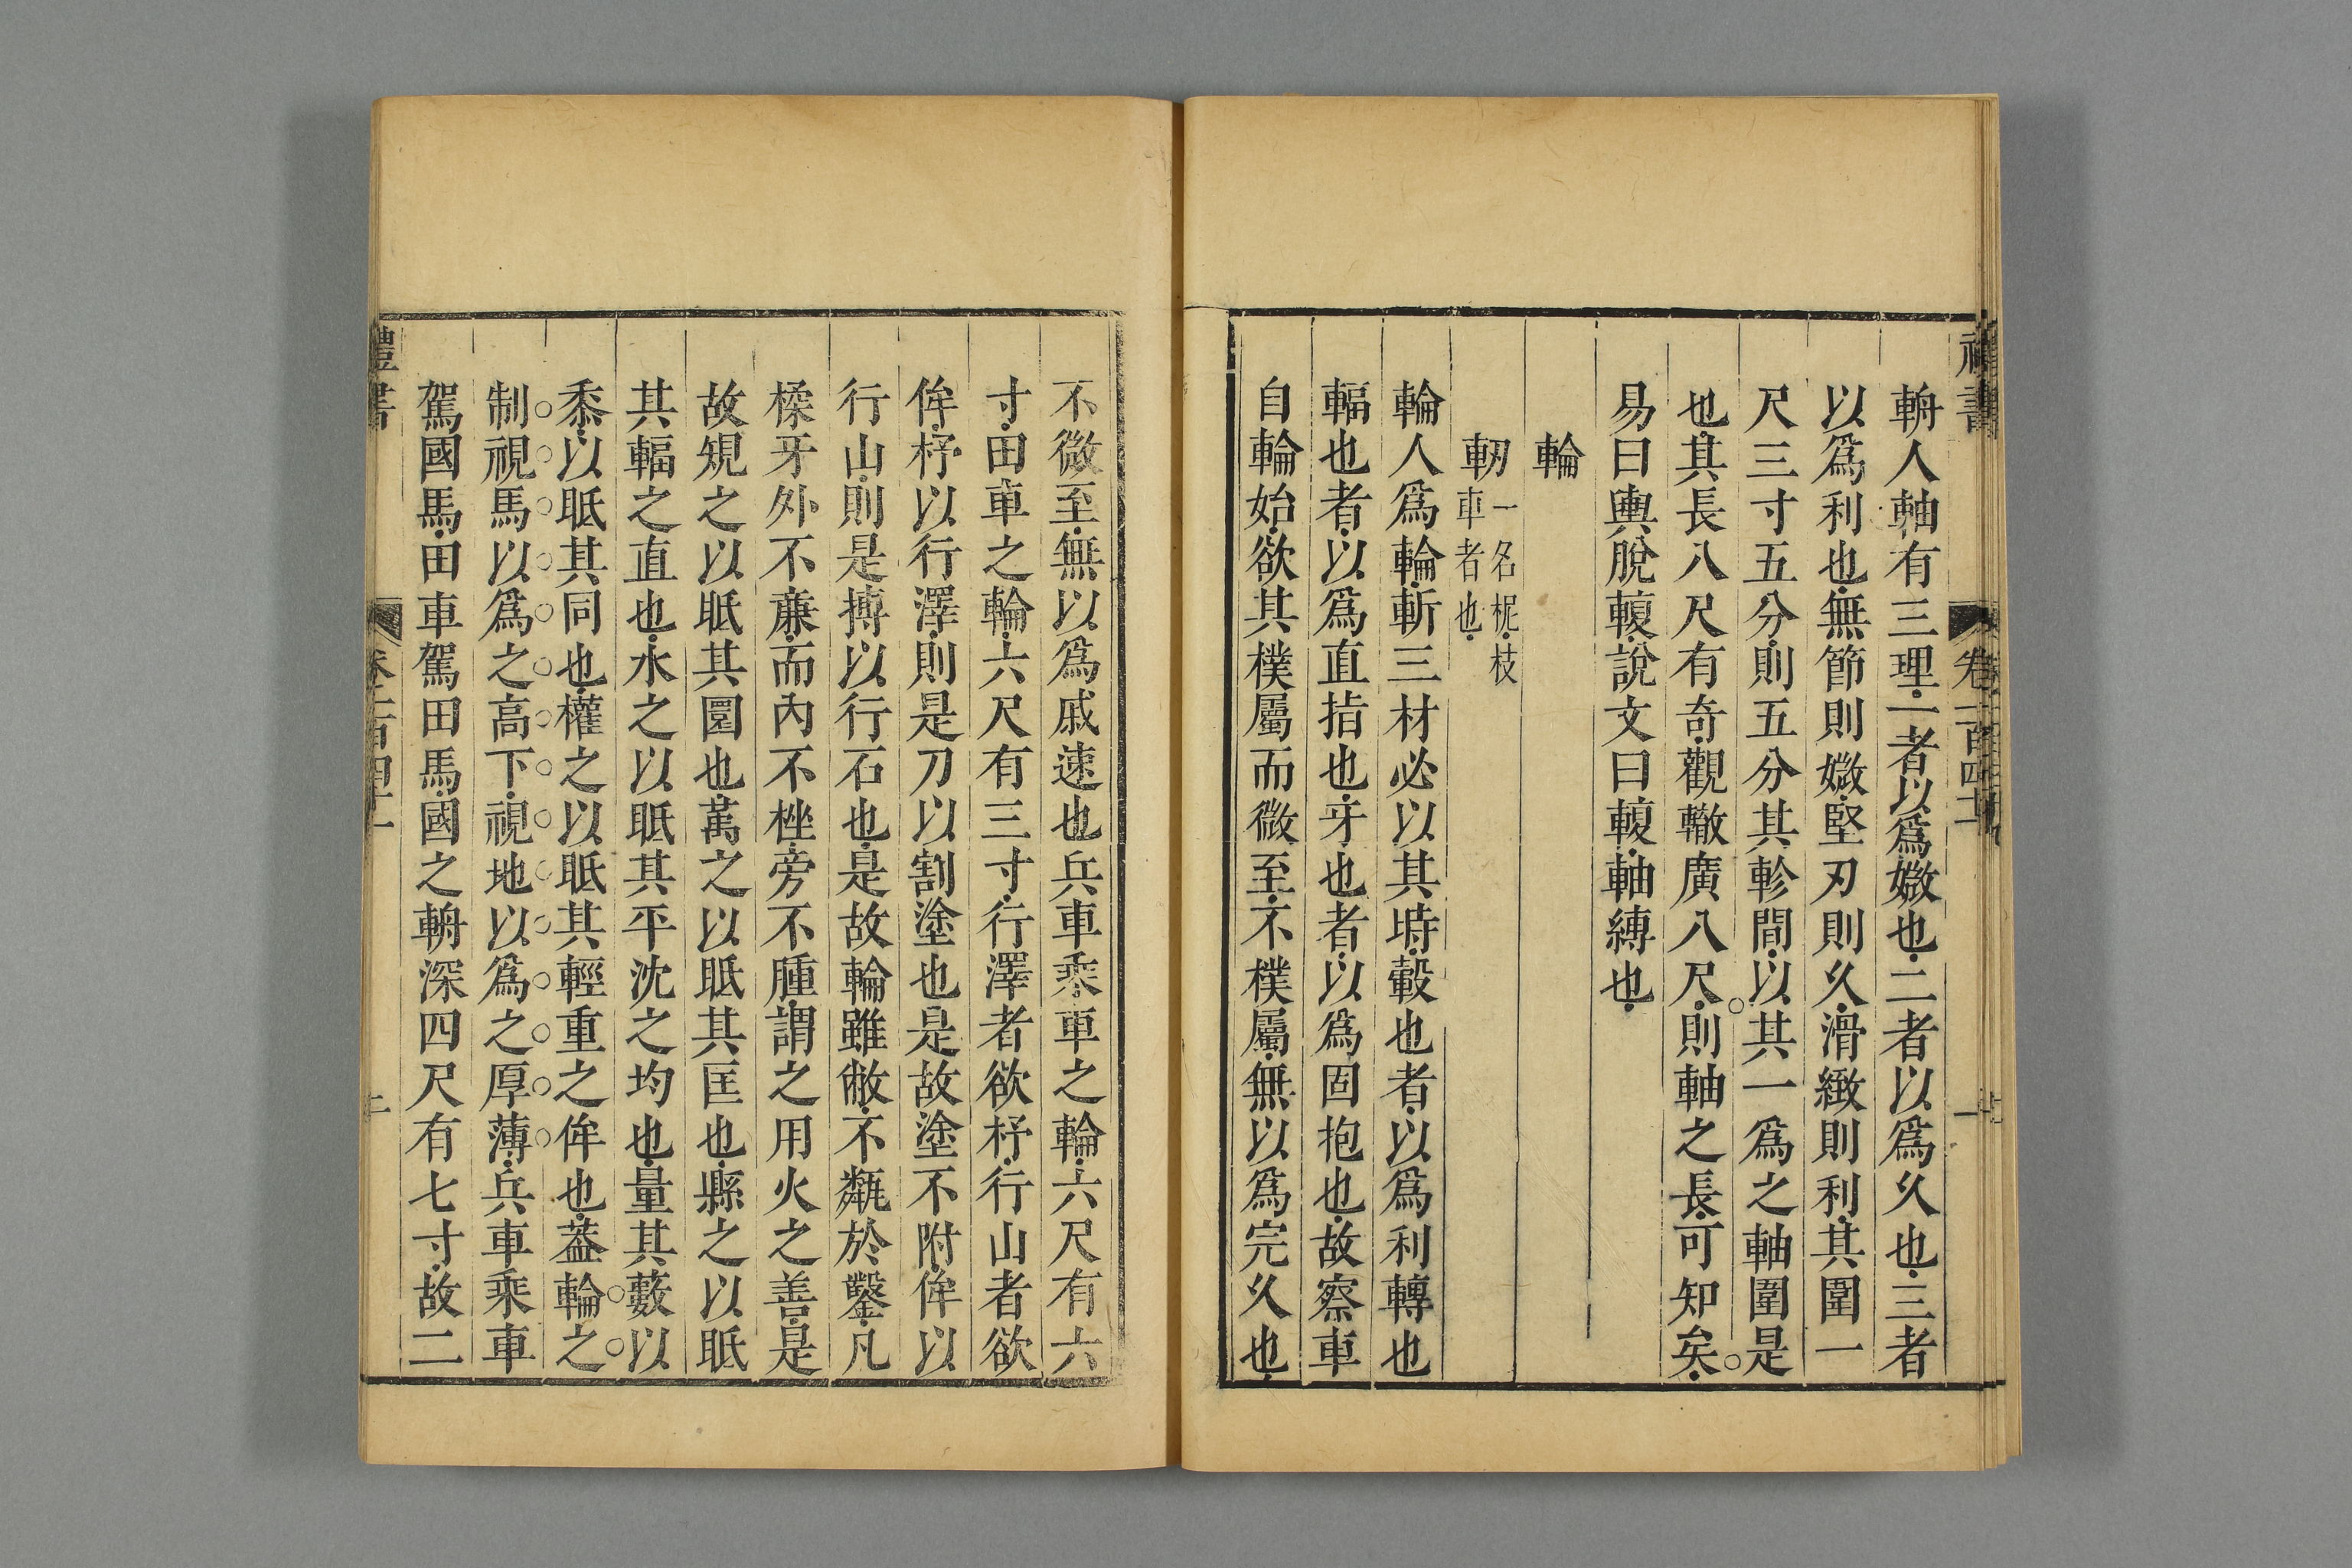 輈人軸有三理一者以爲媺也二者以爲久也三者
以爲利也無節則媺堅刃則久滑緻則利其圍一
尺三寸五分則五分其軫間以其一爲之軸圍是
也其長八尺有奇觀轍廣八尺則軸之長可知矣
易曰輿脫輹說文曰輹軸縛也
輪
軔一名柅枝
車者也
輪人爲輪斬三材必以其時轂也者以爲利轉也
輻也者以爲直指也牙也者以爲固抱也故察車
自輪始欲其樸屬而微至不樸屬無以爲完久也
不微至無以爲戚速也兵車乘車之輪六尺有六
寸田車之輪六尺有三寸行澤者欲杼行山者欲
侔杼以行澤則是刀以割塗也是故塗不附侔以
行山則是摶以行石也是故輪雖敝不甐於鑿凡
楺牙外不亷而內不挫旁不腫謂之用火之善是
故規之以眡其圜也萬之以眡其匡也縣之以眡
其輻之直也水之以眡其平沈之均也量其藪以
黍以眡其同也權之以眡其輕重之侔也葢輪之
制視馬以爲之高下視地以爲之厚薄兵車乘車
駕國馬田車駕田馬國之輈深四尺有七寸故二
禮書